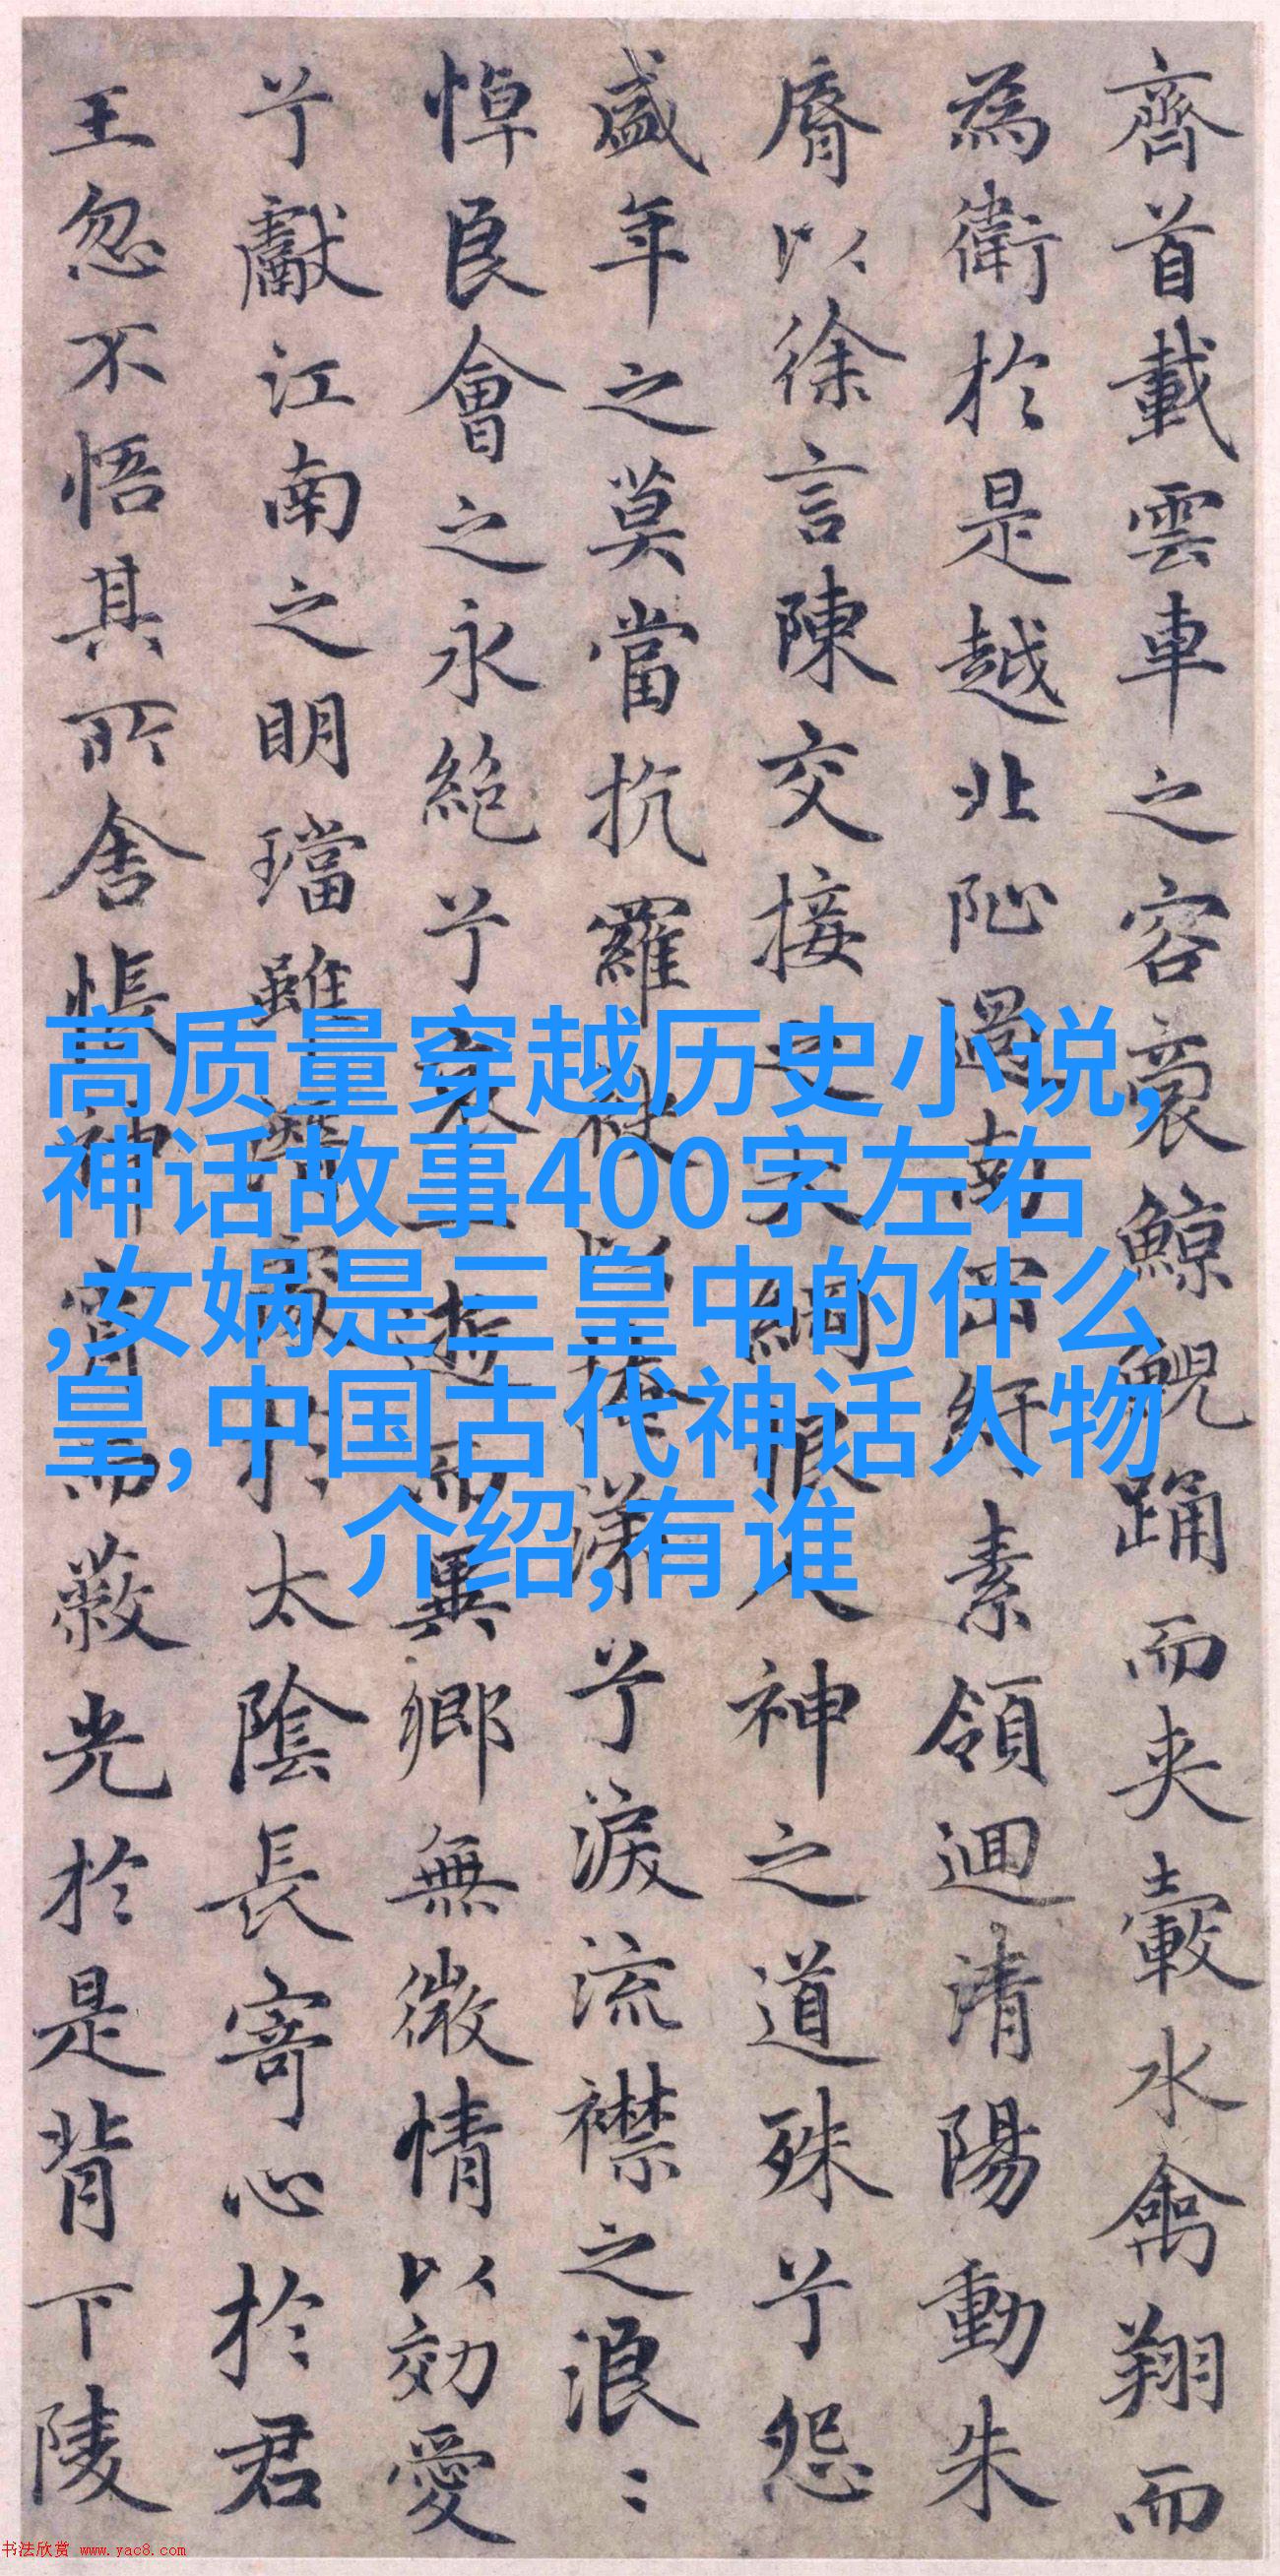 齊首載雲車之容裔鯨鯢踊而夾轂水禽翔而
為衛於是越北阯過南岡紆素領迴清陽動朱
脣以徐言陳交接之大綱恨人神之道殊兮怨
盛年之莫當抗羅袂以掩涕兮淚流襟之浪〻
悼良會之永絕兮哀一逝而異鄉無微情以効愛
兮獻江南之明璫雖潛處於太陰長寄心於君
王忽不悟其所舍悵神宵而蔽光於是背下陵
高质量穿越历史小说,
神话故事400字左右
,女娲是三皇中的什么
皇,中国古代神话人物
介绍,有谁
书法欣赏 www.yac8.com